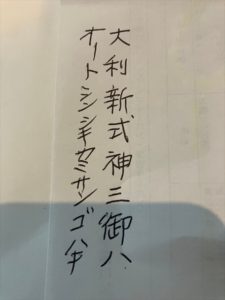 大利新式神三御八
オートシンシキカミサンゴハチ